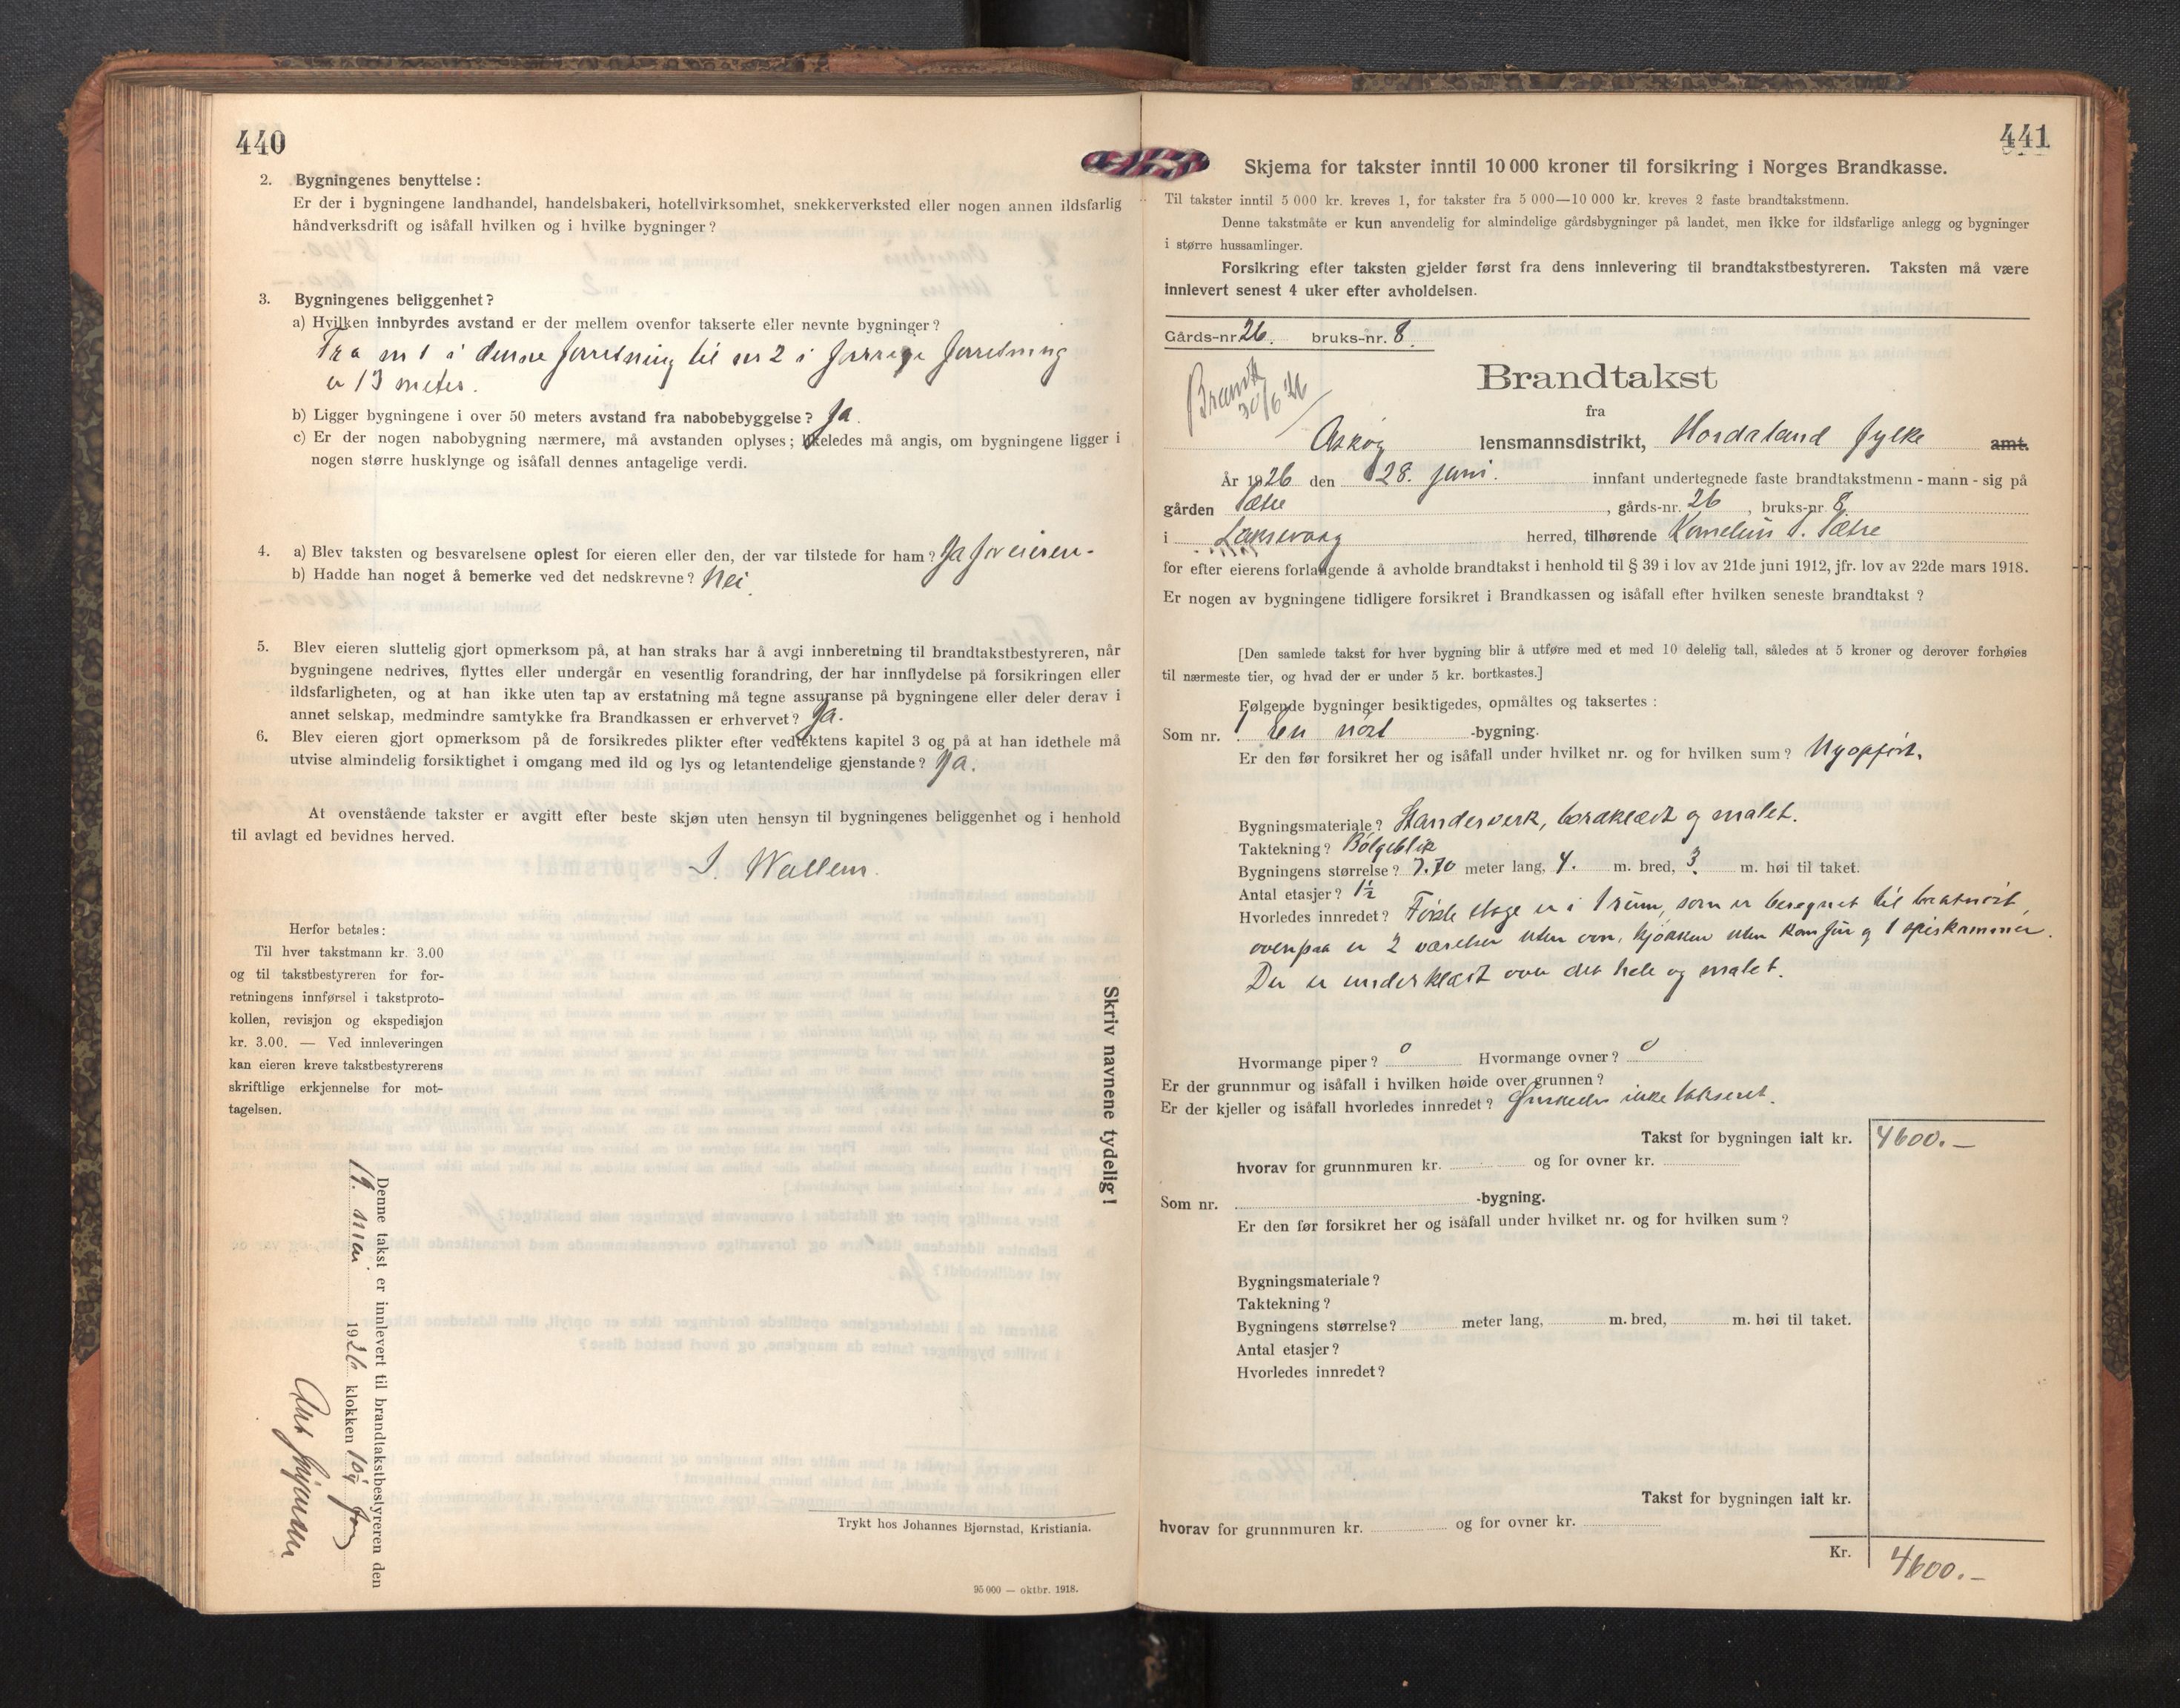 440
2. Bygningenes benyttelse:
Er der i bygningene landhandel, handelsbakeri, hotellvirksomhet, snekkerverksted eller nogen annen ildsfarlig
håndverksdrift og isåfall hvilken og i hvilke bygninger?
3. Bygningenes beliggenhet?
a) Hvilken innbyrdes avstand er der mellem ovenfor takserte eller nevnte bygninger?
Fra nr 1 i denne forretning til nr 2 i forrige forretning
er 13 meter.
b) Ligger bygningene i over 50 meters avstand fra nabobebyggelse? Ja.
c) Er der nogen nabobygning nærmere, må avstanden oplyses; likeledes må angis, om bygningene ligger i
nogen større husklynge og isåfall dennes antagelige verdi.
4. a) Blev taksten og besvarelsene oplest for eieren eller den, der var tilstede for ham? Ja for eieren-
b) Hadde han noget å bemerke ved det nedskrevne? Nei.
5. Blev eieren sluttelig gjort opmerksom på, at han straks har å avgi innberetning til brandtakstbestyreren, når
bygningene nedrives, flyttes eller undergår en vesentlig forandring, der har innflydelse på forsikringen eller
ildsfarligheten, og at han ikke uten tap av erstatning må tegne assuranse på bygningene eller deler derav i
annet selskap, medmindre samtykke fra Brandkassen er erhvervet? Ja.
6. Blev eieren gjort opmerksom på de forsikredes plikter efter vedtektens kapitel 3 og på at han idethele må
utvise almindelig forsiktighet i omgang med ild og lys og letantendelige gjenstande? Ja.
At ovenstående takster er avgitt efter beste skjøn uten hensyn til bygningenes beliggenhet og i henhold
til avlagt ed bevidnes herved.
S. Wallem.
Herfor betales:
Til hver takstmann kr. 3.00
og til takstbestyreren for for-
retningens innførsel i takstproto-
kollen, revisjon og ekspedisjon
kr. 3.00. — Ved innleveringen
kan eieren kreve takstbestyrerens
skriftlige erkjennelse for mot-
tagelsen.
Skriv navnene tydelig!
Denne takst er innlevert til brandtakstbestyreren den
19. mai 1926 klokken 10
Trykt hos Johannes Bjørnstad, Kristiania.
95 000 — oktbr. 1918.
441
Skjema for takster inntil 10 000 kroner til forsikring i Norges Brandkasse.
Til takster inntil 5 000 kr. kreves 1, for takster fra 5 000—10 000 kr. kreves 2 faste brandtakstmenn.
Denne takstmåte er kun anvendelig for almindelige gårdsbygninger på landet, men ikke for ildsfarlige anlegg og bygninger
i større hussamlinger.
Forsikring efter taksten gjelder først fra dens innlevering til brandtakstbestyreren. Taksten må være
innlevert senest 4 uker efter avholdelsen.
Gårds-nr 26. bruks-nr. 8.
Brandtakst
30/6 26
fra
Askøy lensmannsdistrikt, Hordaland fylke amt.
År 1926 den 28. juni. innfant undertegnede faste brandtakstmenn - mann - sig på
gården Sætre, gårds-nr. 26, bruks-nr 8
i Laksevaag herred, tilhørende Kornelius S. Sætre
for efter eierens forlangende å avholde brandtakst i henhold til § 39 i lov av 21de juni 1912, jfr. lov av 22de mars 1918.
Er nogen av bygningene tidligere forsikret i Brandkassen og isåfall efter hvilken seneste brandtakst?
[Den samlede takst for hver bygning blir å utføre med et med 10 delelig tall, således at 5 kroner og derover forhøies
til nærmeste tier, og hvad der er under 5 kr. bortkastes.]
Følgende bygninger besiktigedes, opmåltes og taksertes:
Som nr. 1 En nöst -bygning.
Er den før forsikret her og isåfall under hvilket nr. og for hvilken sum? Nyopført.
Bygningsmateriale? Standerverk, bordklædt og malet.
Taktekning? Bölgeblik
Bygningens størrelse? 7.70 meter lang, 4. m. bred, 3. m. høi til taket.
Antal etasjer? 1½
Hvorledes innredet? Förste etage er i 1 rum, som er beregnet til baatnöst,
ovenpaa er 2 værelser uten ovn, kjökken uten komfur og 1 spiskammer.
Der er underklædt over det hele og malet.
Hvormange piper? 0 Hvormange ovner? 0
Er der grunnmur og isåfall i hvilken høide over grunnen?
Er der kjeller og isåfall hvorledes innredet? ikke takseret.
Takst for bygningen ialt kr. 4600.-
hvorav for grunnmuren kr. og for ovner kr.
Som nr. -bygning.
Er den før forsikret her og isåfall under hvilket nr. og for hvilken sum?
Bygningsmateriale?
Taktekning?
Bygningens størrelse? meter lang, m. bred, m. høi til taket.
Antal etasjer?
Hvorledes innredet?
Takst for bygningen ialt kr.
hvorav for grunnmuren kr. og for ovner kr.
Kr. 4600.-